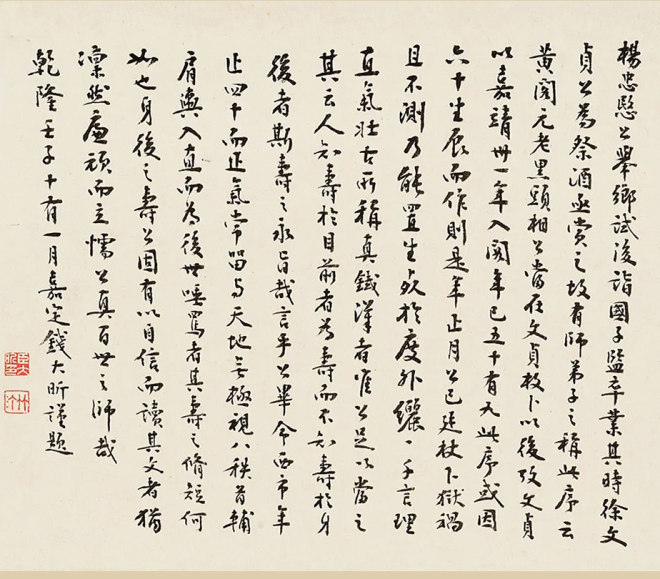 楊忠愍公舉鄉試後詣國子監卒業其時徐文
貞公為祭酒亟賞之故有師弟子之稱此序云
黃閣元老黑頭相公當在文貞枚卜以後攷文貞
以嘉靖卅一年入閣年已五十有九此序或因
六十生辰而作則是年正月公已廷杖下獄禍
且不測乃能置生死於度外纚纚千言理
直氣壯古所稱真鐵漢者唯公足以當之
其云人知壽於目前者為壽而不知壽於身
後者斯壽之永旨哉言乎公畢命西市年
止四十而正氣常留與天地無極視八秩首輔
肩輿入直而為後世唾罵者其壽之脩短何
如也身後之壽公固有以自信而讀其文者猶
凜然廉頑而立懦公真百世之師哉
乾隆壬子十有一月嘉定錢大昕謹題
臣大昕